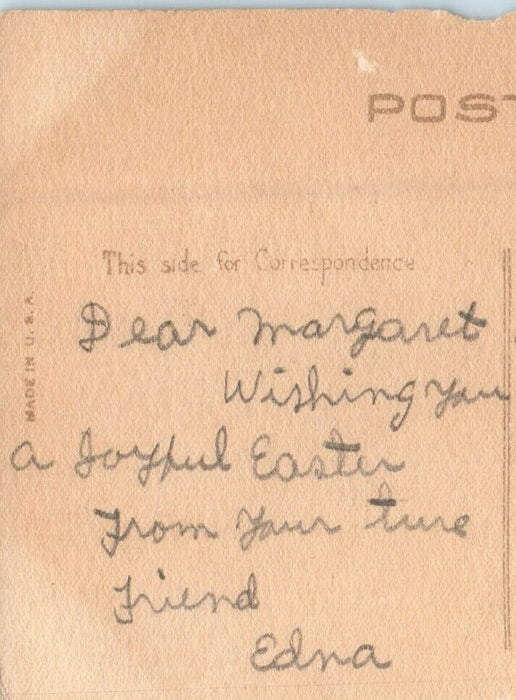 POST
This side for Correspondence
MADE IN U.S.A.
Dear Margaret.
Wishing you
a Joyful Easter
From your ture
Friend
Edna